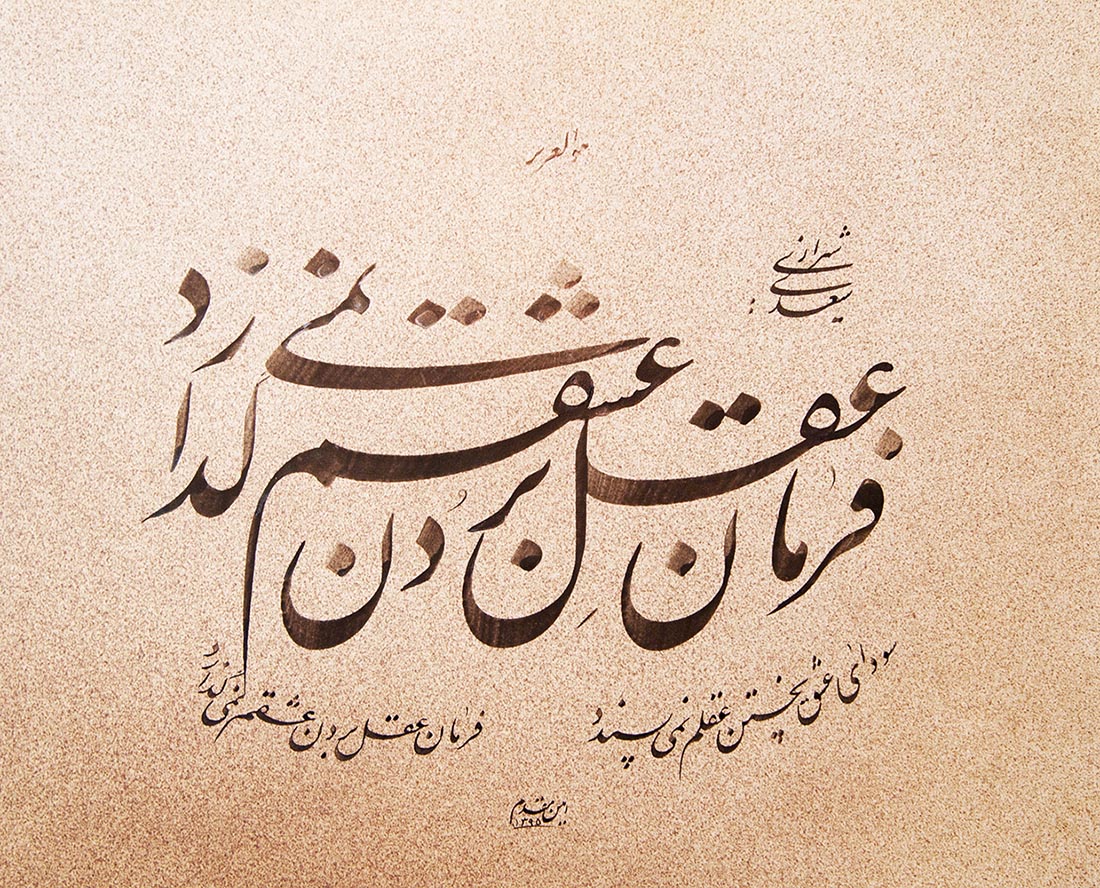 هوالعزیز
سعدی شیرازی:
فرمان عقل بردن عشقم نمی گذارد
سودای عشق پختن عقلم نمی پسندد
فرمان عقل بردن عشقم نمی گذارد
امین مقدم
۱۳۹۵